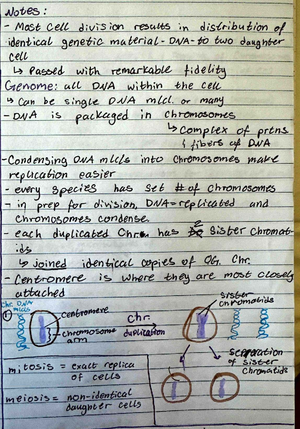 Notes:
- Most cell division results in distribution of
identical genetic material - DNA - to two daughter
cell
↳ Passed with remarkable fidelity
Genome: all DNA within the cell
↳ Can be single DNA mlcl. or many
- DNA is packaged in chromosomes
↳ Complex of prtns
& fibers of DNA
- Condensing DNA mlcls into chromosomes make
replication easier
- every species has set # of chromosomes
- in prep for division, DNA = replicated and
Chromosomes condense.
- each duplicated Chr. has 2 Sister Chromat-
ids
↳ joined identical copies of OG. Chr.
- Centromere is where they are most closely
attached
Chr. DNA
mlcls
①
centromere
chromosome
arm
Chr.
duplication
sister
chromatids
separation
of sister
Chromatids
mitosis = exact replica
of cells
meiosis = non-identical
daughter cells